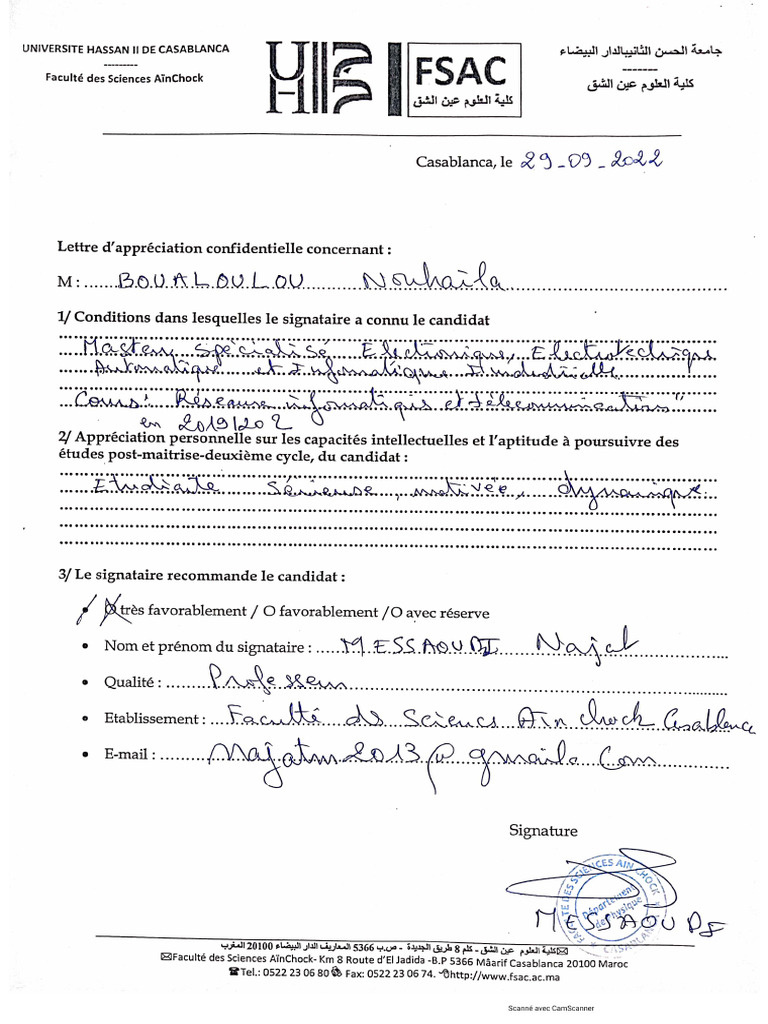 UNIVERSITE HASSAN II DE CASABLANCA
---------
Faculté des Sciences AïnChock
UH2C
FSAC
كلية العلوم عين الشق
جامعة الحسن الثانيبالدار البيضاء
-------
كلية العلوم عين الشق
Casablanca, le 29-09-2022
Lettre d'appréciation confidentielle concernant :
M : BOUALOULOU Nouhaila
1/ Conditions dans lesquelles le signataire a connu le candidat
Master Spécialisé Electronique, Electrotechnique
Automatique et Informatique Industrielle
Cours: Réseaux informatiques et télécommunications"
en 2019/202
2/ Appréciation personnelle sur les capacités intellectuelles et l'aptitude à poursuivre des
études post-maitrise-deuxième cycle, du candidat :
Etudiante Sérieuse, motivée, dynamique.
3/ Le signataire recommande le candidat :
très favorablement / O favorablement /O avec réserve
Nom et prénom du signataire : MESSAOUDI Najat
Qualité : Professeur
Etablissement : Faculté des Sciences Ain chock Casablanca
E-mail : najatm2013@gmail.com
Signature
FACULTE DES SCIENCES AIN CHOCK
Département de Physique
CASABLANCA
MESSAOUDI
كلية العلوم عين الشق - كلم 8 طريق الجديدة - ص.ب 5366 المعاريف الدار البيضاء 20100 المغرب
Faculté des Sciences AïnChock- Km 8 Route d'El Jadida -B.P 5366 Mâarif Casablanca 20100 Maroc
Tel.: 0522 23 06 80 Fax: 0522 23 06 74. http://www.fsac.ac.ma
Scanné avec CamScanner